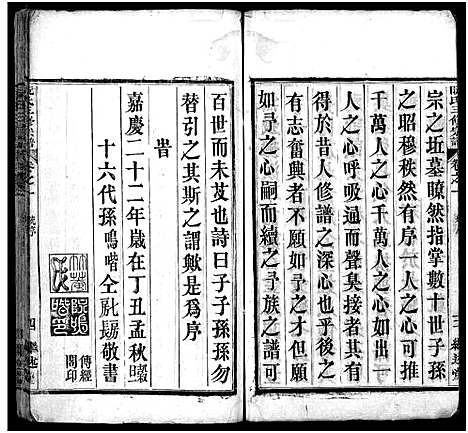 宗之坵墓瞭然指掌數十世子孫
之昭穆秩然有序一人之心可推
千萬人之心千萬人之心如見一
人之心呼吸通而聲臭接者其有
得於昔人修譜之深心也夫有其
志與事者不願如予之才但願
如予之心嗣而續之予族之譜可
百世而未艾也詩曰子子孫孫勿
替引之其斯之謂歟是爲序
旹
嘉慶二十二年歲在丁丑孟秋月穀
十六代孫鳴喈仝敬書
傳經
閣印
三
四